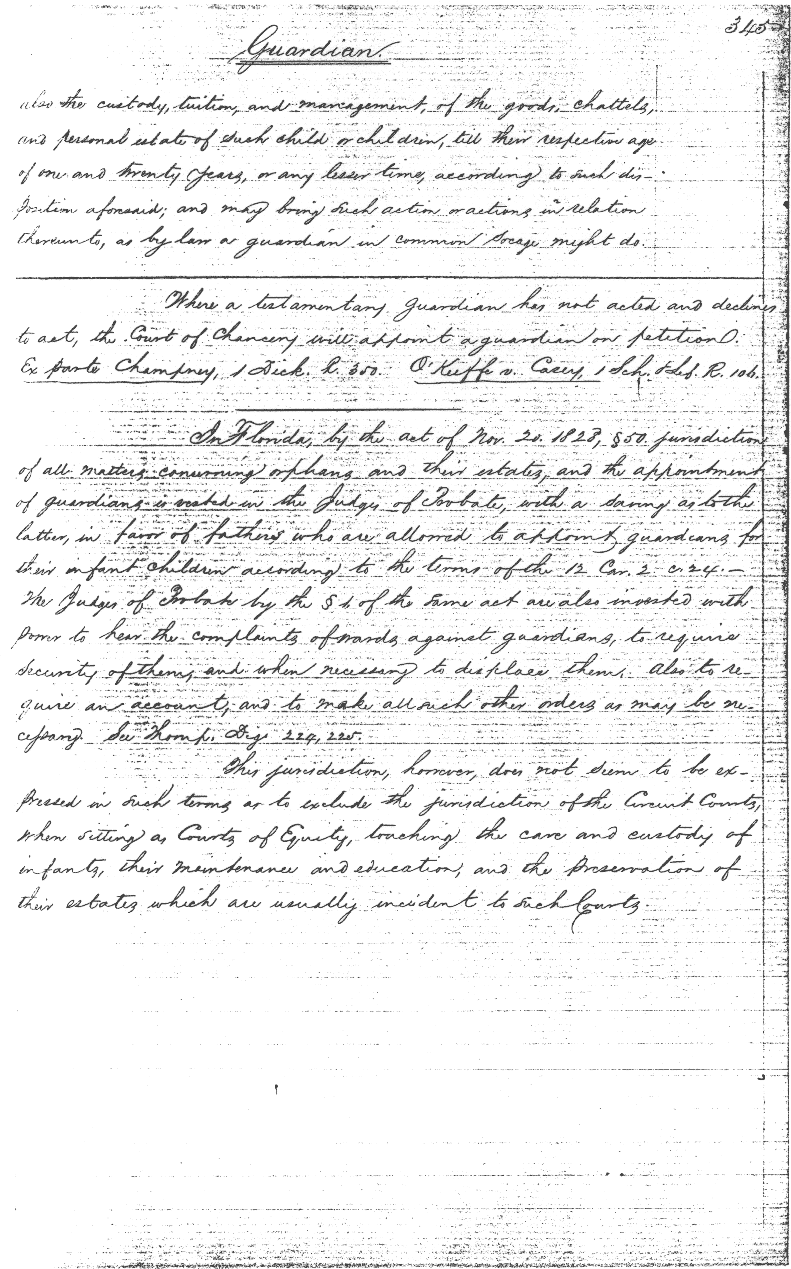 345
Guardian.
also the custody, tuition, and management, of the goods, chattels,
and personal estate of such child or children, till their respective age
of one and twenty years, or any lesser time, according to such dis-
position aforesaid; and may bring such action or actions in relation
thereunto, as by law a guardian in common socage might do.
Where a testamentary guardian has not acted and declines
to act, the Court of Chancery will appoint a guardian on petition.
Ex parte Champney, 1 Dick. R. 350. O'Keiffe v. Casey, 1 Sch. & Lef. R. 106.
In Florida, by the act of Nov. 20. 1828, § 50. jurisdiction
of all matters concerning orphans and their estates, and the appointment
of guardians is vested in the Judges of Probate, with a saving as to the
latter, in favor of fathers who are allowed to appoint guardians for
their infant children according to the terms of the 12 Car. 2 c. 24. —
The Judges of Probate by the § 6 of the same act are also invested with
power to hear the complaints of wards against guardians, to require
security of them, and when necessary to displace them. Also to re-
quire an account, and to make all such other orders as may be ne-
cessary. See Thomp. Dig. 224, 225.
This jurisdiction, however, does not seem to be ex-
pressed in such terms as to exclude the jurisdiction of the Circuit Courts,
when sitting as Courts of Equity, touching the care and custody of
infants, their maintenance and education, and the preservation of
their estates which are usually incident to such Courts.